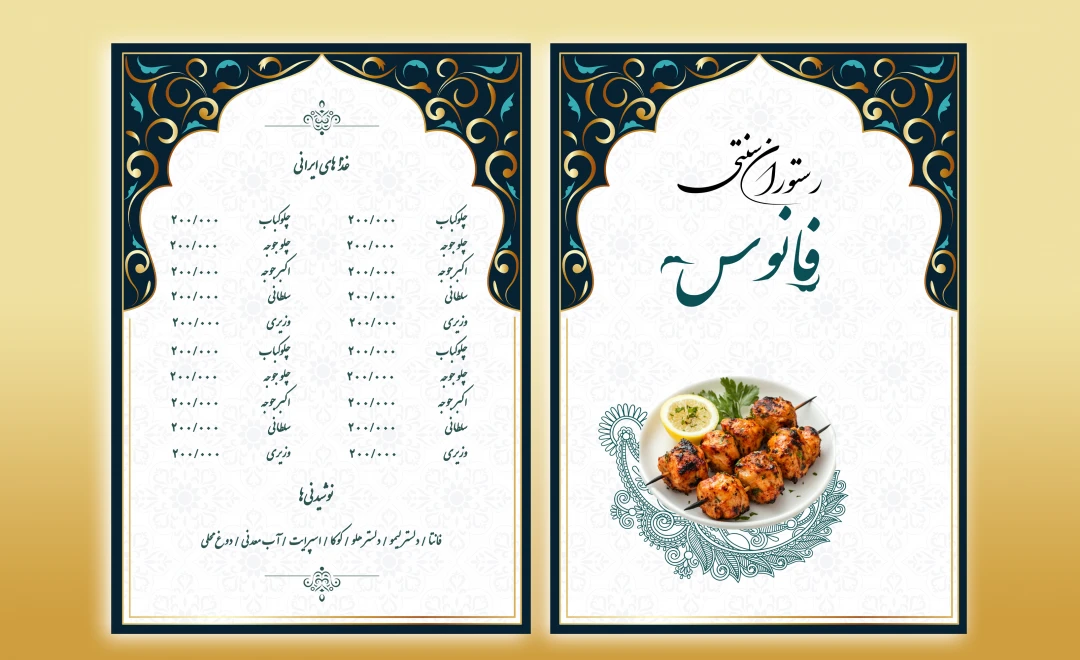 رستوران سنتی
فانوس
غذاهای ایرانی
چلوکباب ۲۰۰/۰۰۰ چلوکباب ۲۰۰/۰۰۰
چلوجوجه ۲۰۰/۰۰۰ چلوجوجه ۲۰۰/۰۰۰
اکبرجوجه ۲۰۰/۰۰۰ اکبرجوجه ۲۰۰/۰۰۰
سلطانی ۲۰۰/۰۰۰ سلطانی ۲۰۰/۰۰۰
وزیری ۲۰۰/۰۰۰ وزیری ۲۰۰/۰۰۰
چلوکباب ۲۰۰/۰۰۰ چلوکباب ۲۰۰/۰۰۰
چلوجوجه ۲۰۰/۰۰۰ چلوجوجه ۲۰۰/۰۰۰
اکبرجوجه ۲۰۰/۰۰۰ اکبرجوجه ۲۰۰/۰۰۰
سلطانی ۲۰۰/۰۰۰ سلطانی ۲۰۰/۰۰۰
وزیری ۲۰۰/۰۰۰ وزیری ۲۰۰/۰۰۰
نوشیدنی‌ها
فانتا / دلسترلیمو / دلسترهلو / کوکا / اسپرایت / آب معدنی / دوغ محلی